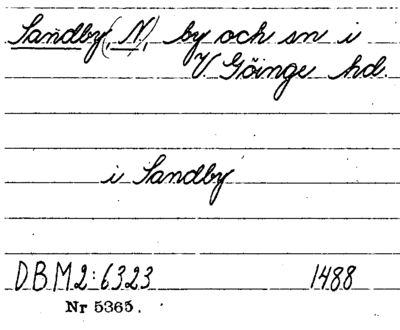 Sandby(, N), by och sn i
V Göinge hd.
i Sandby
DBM2:6323 1488
Nr 5365.